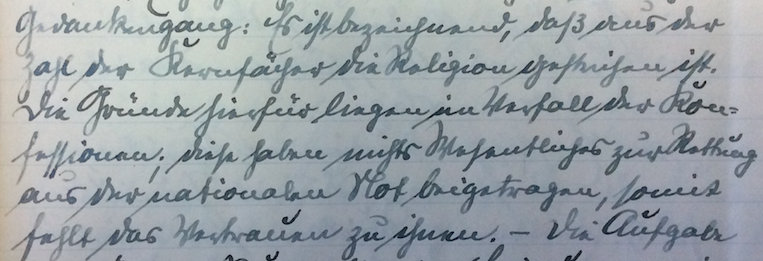 Gedankengang: Es ist bezeichnend, daß aus der
Zahl der Kernfächer die Religion gestrichen ist.
Die Gründe hierfür liegen im Verfall der Kon-
fessionen; diese haben nichts Wesentliches zur Rettung
aus der nationalen Not beigetragen, somit
fehlt das Vertrauen zu ihnen. – Die Aufgabe